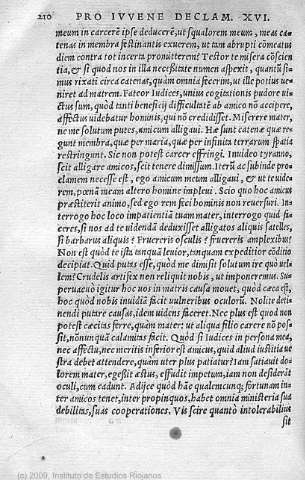 210 PRO IVVENE DECLAM. XVI.
meum in carcerẽ ipse deducerẽ, ut squalorem meum, meas catenas
in membra festinantis exuerem, ut tam abrupti cõmeatus
diem contra tot incerta promitterem? Testor te misera cõscientia,
& si quod nos in illa necessitate numen aspexit, quantũ simus
rixati circa catenas, quam omnia fecerim, ut ille potius ueniret
ad matrem. Fateor Iudices, unius cogitationis pudore uictus
sum, quòd tanti beneficij difficultatẽ ab amico nõ accipere,
affectus uidebatur hominis, qui nõ credidisset. Miserere mater,
ne me solutum putes, amicum alligaui. Hæ sunt catenæ quæ regunt
membra, quæ per maria, quæ per infinita terrarum spatia
restringunt. Sic non potest carcer effringi. Inuideo tyranno,
scit alligare amicos, scit tenere dimissum. Iterũ ac subinde proclamem
necesse est, ego amicum meum alligaui, & ut te uiderem,
pœnã meam altero homine impleui. Scio quo hoc amicus
præstiterit animo, sed ego rem feci hominis non reuersuri. Interrogo
hoc loco impatientiã tuam mater, interrogo quid faceres,
si nos ad te uidendã deduxisset alligatos aliquis satelles,
si barbarus aliquis? Fruereris osculis? fruereris amplexibus?
Non est quòd te ista tanquã leuior, tanquam expeditior cõditio
decipiat. Quid putas esse, quòd me dimisit solutum ire quò uellem?
Crudelis artifex non reliquit nobis, ut imponeremus. Superuacuũ
igitur hoc uos in matris causa mouet, quòd cæca est,
hoc quòd nobis inuidiã facit uulneribus oculorũ. Nolite detinendi
putare causas, idem uidens faceret. Nec plus est quòd non
potest cæcitas ferre, quàm mater: ut aliqua filio carere nõ possit,
nõnunquã calamitas facit. Quòd si Iudices in persona mea,
nec affectu, nec meritis inferior est amicus, quid aliud iustitia uestra
debet attendere, quàm uter plus patiatur? Iam satiauit dolorem
mater, egessit æstus, effudit impetum, iam non desiderãt
oculi, cum cadunt. Adijce quòd hãc qualemcunq; fortunam inter
amicos tenet, inter propinquos, habet omnia ministeria suæ
debilitas, suas cooperationes. Vis scire quantò intolerabilius
sit
(c) 2009, Instituto de Estudios Riojanos